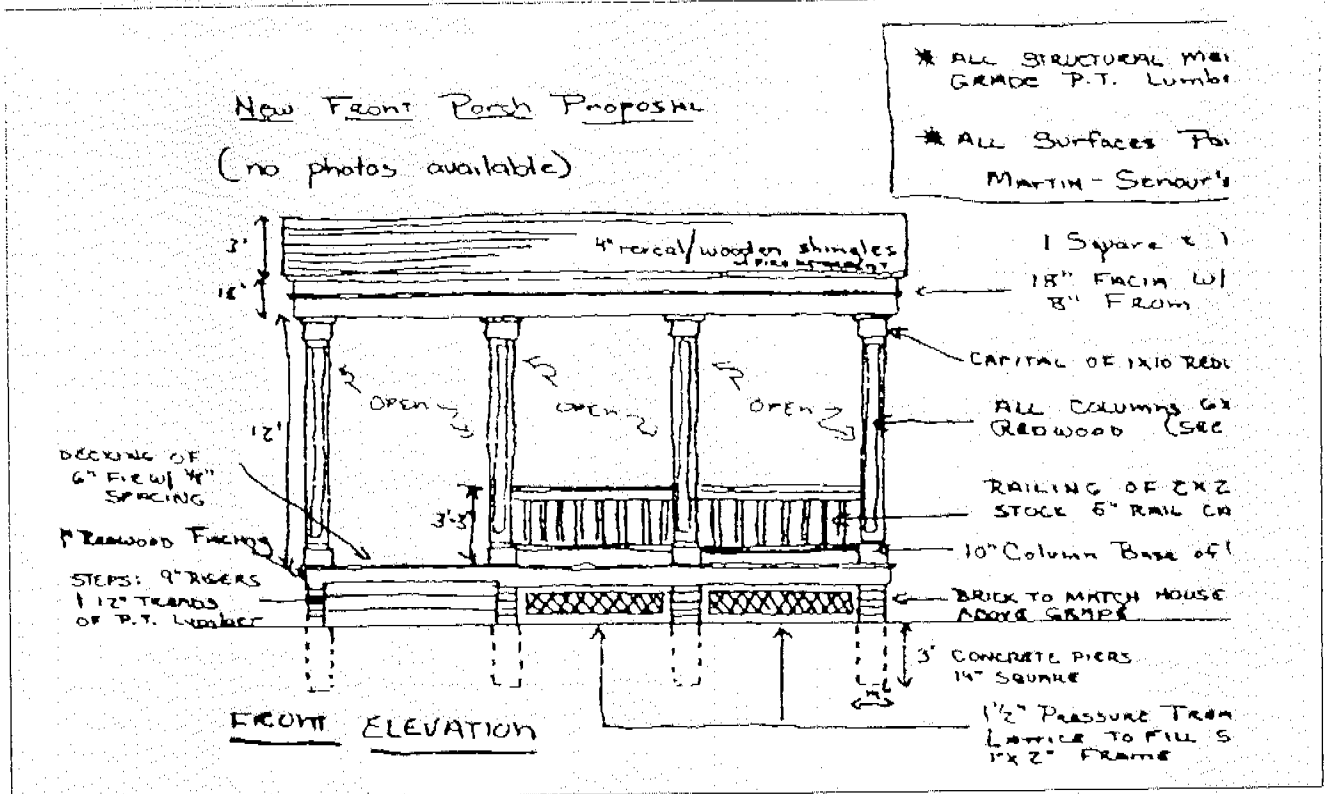 New Front Porch Proposal
(no photos available)
* ALL STRUCTURAL MEI
GRADE P.T. Lumbe
* ALL Surfaces Pai
MARTIN-SENOUR'S
3'
4" reveal/wooden shingles
18"
1 Square x 1
18" FACIA W/
8" FROM
CAPITAL OF 1X10 REDU
OPEN
OPEN
OPEN
ALL COLUMNS 6X
REDWOOD (SEE
12'
DECKING OF
6" FIR W/ 1/8"
SPACING
3'-3"
RAILING OF 2X2
STOCK 6" RAIL CA
1" REDWOOD FACING
10" Column Base of
STEPS: 9" RISERS
12" TREADS
OF P.T. Lumber
BRICK TO MATCH HOUSE
ABOVE GRADE
3' CONCRETE PIERS
14" SQUARE
14"
FRONT ELEVATION
1 1/2" PRESSURE TREA
LATTICE TO FILL S
1" X 2" FRAME